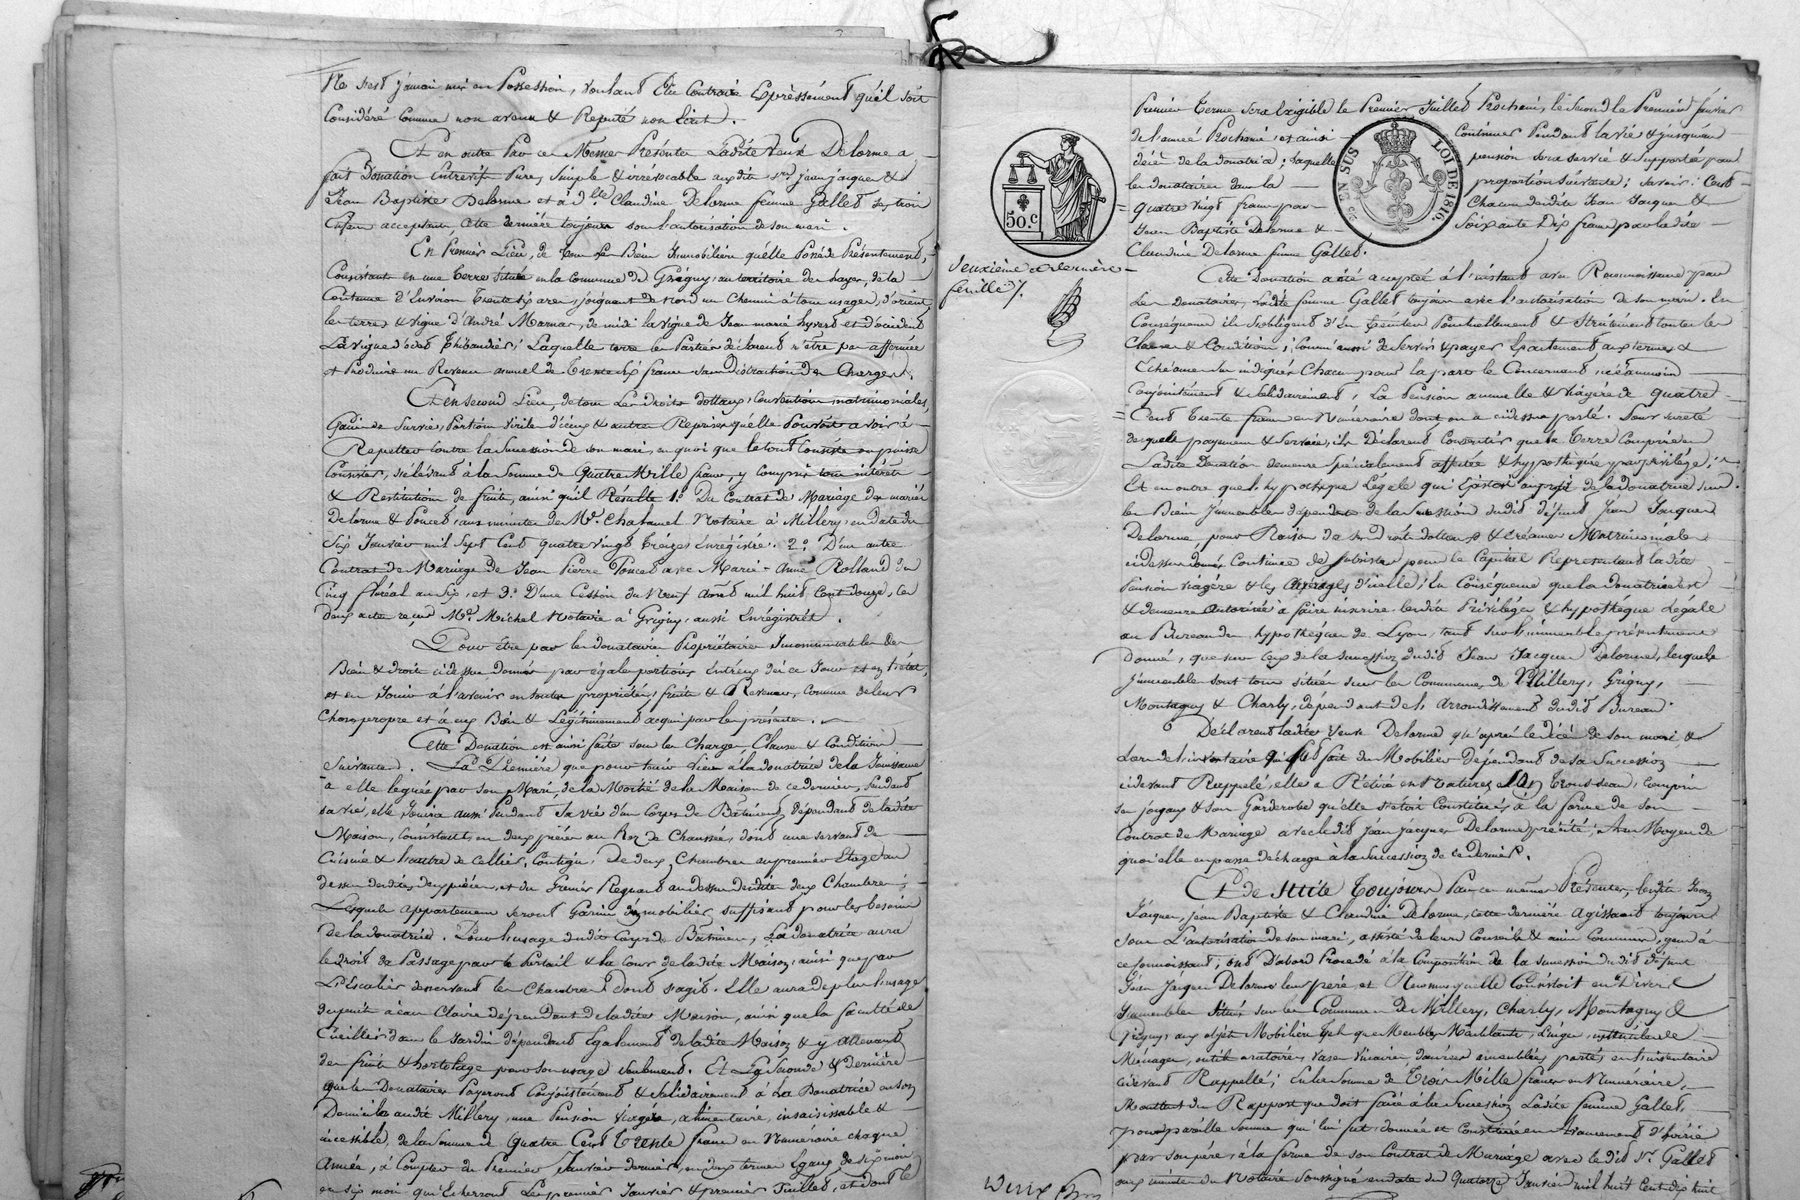 Ne s'est jamais mis en Possession, voulant Elle Contraire Expressément qu'il soit
Considéré Comme non avenu & Réputé non Ecrit.
Et en outre Par ces Mêmes Présentes Ladite Veuve Delorme a
fait Donation Entrevifs Pure, Simple & irrévocable auxdits Srs. Jean Jacques &
Jean Baptiste Delorme et à dlle. Claudine Delorme femme Gallet ses trois
Enfans acceptans, Cette dernière toujours sous l'autorisation de son mari.
En Premier Lieu, de tous les Biens Immobiliers qu'elle Possède Présentement,
Consistants en une terre Située en la Commune de Grigny, au territoire des hayes, de la
Contenue d'Environ trente six ares, joignant de Nord un Chemin à tous usages, d'orient
les terres & vigne d'André Marnas, de midi la vigne de Jean marie hyvert et d'occident
La vigne d' Thibaudier; Laquelle terre les Parties déclarent n'être pas affermée
et Produire un Revenu annuel de Trente six francs sans distraction des Charges.
Et en second Lieu, de tous les Droits dottaux, Conventions matrimoniales,
Gain de Survie, Portion Virile d'iceux & autres Reprises qu'elle Pouvoit avoir à
Repetter contre la Succession de son mari, en quoi que le tout Consiste ou puisse
Consister, s'élevant à la somme de Quatre Mille francs, y compris tous intérêts
& Restitution de fruits, ainsi qu'il Résulte 1o. Du Contrat de Mariage des mariés
Delorme & Poncet, aux minutes de Me. Chatanel Notaire à Millery, en date du
Six Janvier mil Sept Cent quatre vingt treize, Enregistré. 2o. D'un autre
Contrat de Mariage de Jean Pierre Poncet avec Marie-Anne Rolland du
Cinq floréal an six, et 3o. D'une Cession du Neuf août mil huit Cent douze, les
deux actes reçus Me. Michel Notaire à Grigny, aussi Enregistrés.
Pour être par les donataires Propriétaires Incommutables des
Biens & droits ci dessus donnés par égales portions Entr'eux dès ce Jour
et en Jouir à l'avenir en toutes propriétés, fruits & Revenus, comme de leur
Chose propre et à eux Bien & Légitimement acquis par les présentes.
Cette Donation est ainsi faite sous les Charges, Clauses & Conditions
Suivantes. La Première que pour tenir Lieu à la donatrice de la Jouissance
à elle léguée par son Mari, de la Moitié de la Maison de ce dernier, Pendant
sa vie, elle Jouira aussi Pendant sa vie d'un Corps de Bâtiment dépendant de ladite
Maison, Consistant en deux pièces au Rez de Chaussée, dont une servant de
Cuisine & l'autre de Cellier, Contigu; De deux Chambres au premier Etage au
dessus desdites deux pièces, et du Grenier Régnant au dessus desdites deux Chambres;
Lesquels appartements seront Garnis de mobilier suffisant pour les besoins
de la donatrice. Pour l'usage dudit Corps de Bâtiment, La donatrice aura
le droit de Passage par le Portail & la Cour de ladite Maison, ainsi que par
L'Escalier desservant les Chambres dont s'agit. Elle aura de plus l'usage
du puits à eau Claire dépendant de ladite Maison, ainsi que la faculté de
Cueillir dans le Jardin dépendant Egalement de ladite Maison & y attenant
des fruits & hortolage pour son usage seulement. Et La Seconde & dernière
que les Donataires Payeront Conjointement & Solidairement à La Donatrice en son
Domicile audit Millery, une Pension Viagère, alimentaire, insaisissable &
incessible, de la Somme de Quatre Cent trente francs en Numéraire chaque
Année, à Compter du Premier Janvier dernier, en deux termes Egaux de six mois
en six mois qui Echerront Les premiers Janvier & premier Juillet, et dont le
50. C
Deuxième & dernière
feuille /.
EN SUS
LOI DE 1816.
Premier terme sera Exigible le Premier Juillet Prochain, le Second le Premier Janvier
de l'année Prochaine; et ainsi Continuer Pendant la vie & jusqu'au
décès de la donatrice; laquelle pension sera servie & supportée par
les donataires dans la proportion Suivante; Savoir: Cent
quatre vingt francs par Chacun desdits Jean Jacques &
Jean Baptiste Delorme & Soixante Dix francs par ladite
Claudine Delorme femme Gallet.
Cette Donation a été acceptée à l'instant avec Reconnoissance par
Les Donataires, Ladite femme Gallet toujours avec l'autorisation de son mari. En
Conséquence ils s'obligent d'En Exécuter Ponctuellement & Strictement toutes les
Clauses & Conditions, Comme aussi de Servir & payer Exactement aux termes &
Echéances sus indiqués Chacun pour la part le Concernant, néanmoins
Conjointement & Solidairement, La Pension annuelle & viagère de Quatre
Cent Trente francs en Numéraire dont on a ci dessus parlé. Pour sureté
desquels payement & Service, ils Déclarent Consentir que la terre Comprise en
Ladite Donation demeure Spécialement affectée & hypothéquée par privilége;
Et en outre que l'hypothèque Legale qui Existoit au profit de la donatrice sur
les Biens Immeubles dépendants de la succession dudit défunt Jean Jacques
Delorme, pour Raison de ses droits dottaux & créances Matrimoniales
ci dessus donnés, Continue de subsister pour le Capital Représentant ladite
Pension viagère & les Arrérages d'icelle; En Conséquence que la donatrice est
& demeure autorisée à faire inscrire lesdits Privilége & hypothèque Légale
au Bureau des hypothèques de Lyon, tant sur l'immeuble présentement
donné, que sur Ceux de la succession dudit Jean Jacques Delorme, lesquels
Immeubles sont tous situés sur les Communes de Millery, Grigny,
Montagny & Charly, dépendants de l'arrondissement dudit Bureau.
Déclare Ladite Veuve Delorme qu'après le décès de son mari &
Lors de l'inventaire qui fut fait du Mobilier Dépendant de la Succession
ci devant Rappelé, elle a Retiré en Nature Les Trousseau, compris
ses joyaux & son Garderobe qu'elle s'étoit Constitués, à la forme de son
Contrat de Mariage avec ledit Jean Jacques Delorme précité; Au Moyen de
quoi elle en passe décharge à la Succession de ce dernier.
Et de Suite Toujours Par ces mêmes Présentes, lesdits Jean
Jacques, Jean Baptiste & Claudine Delorme, cette dernière agissant toujours
sous L'autorisation de son mari, assistés de leurs Conseils & amis Communs, gens à
ce connoissant, ont D'abord Procédé à la Composition de la succession dudit défunt
Jean Jacques Delorme leur père, et Reconnu qu'elle Consistoit en Divers
Immeubles Situés sur les Communes de Millery, Charly, Montagny &
Grigny, aux objets Mobiliers tels que Meubles Meublants, Linge, ustensiles de
Ménage, outils aratoires, vases vinaires, denrées ensemblées, portés en l'inventaire
ci devant Rappellé; En la Somme de Trois Mille francs en Numéraire,
Montant du Rapport que doit faire à la Succession Ladite femme Gallet,
pour pareille Somme qui lui fut donnée et Constituée en avancement d'hoirie
par son père, à la forme de son Contrat de Mariage avec le dit Sr. Gallet
aux minutes du Notaire Soussigné en date du Quatorze Janvier mil huit Cent dix huit